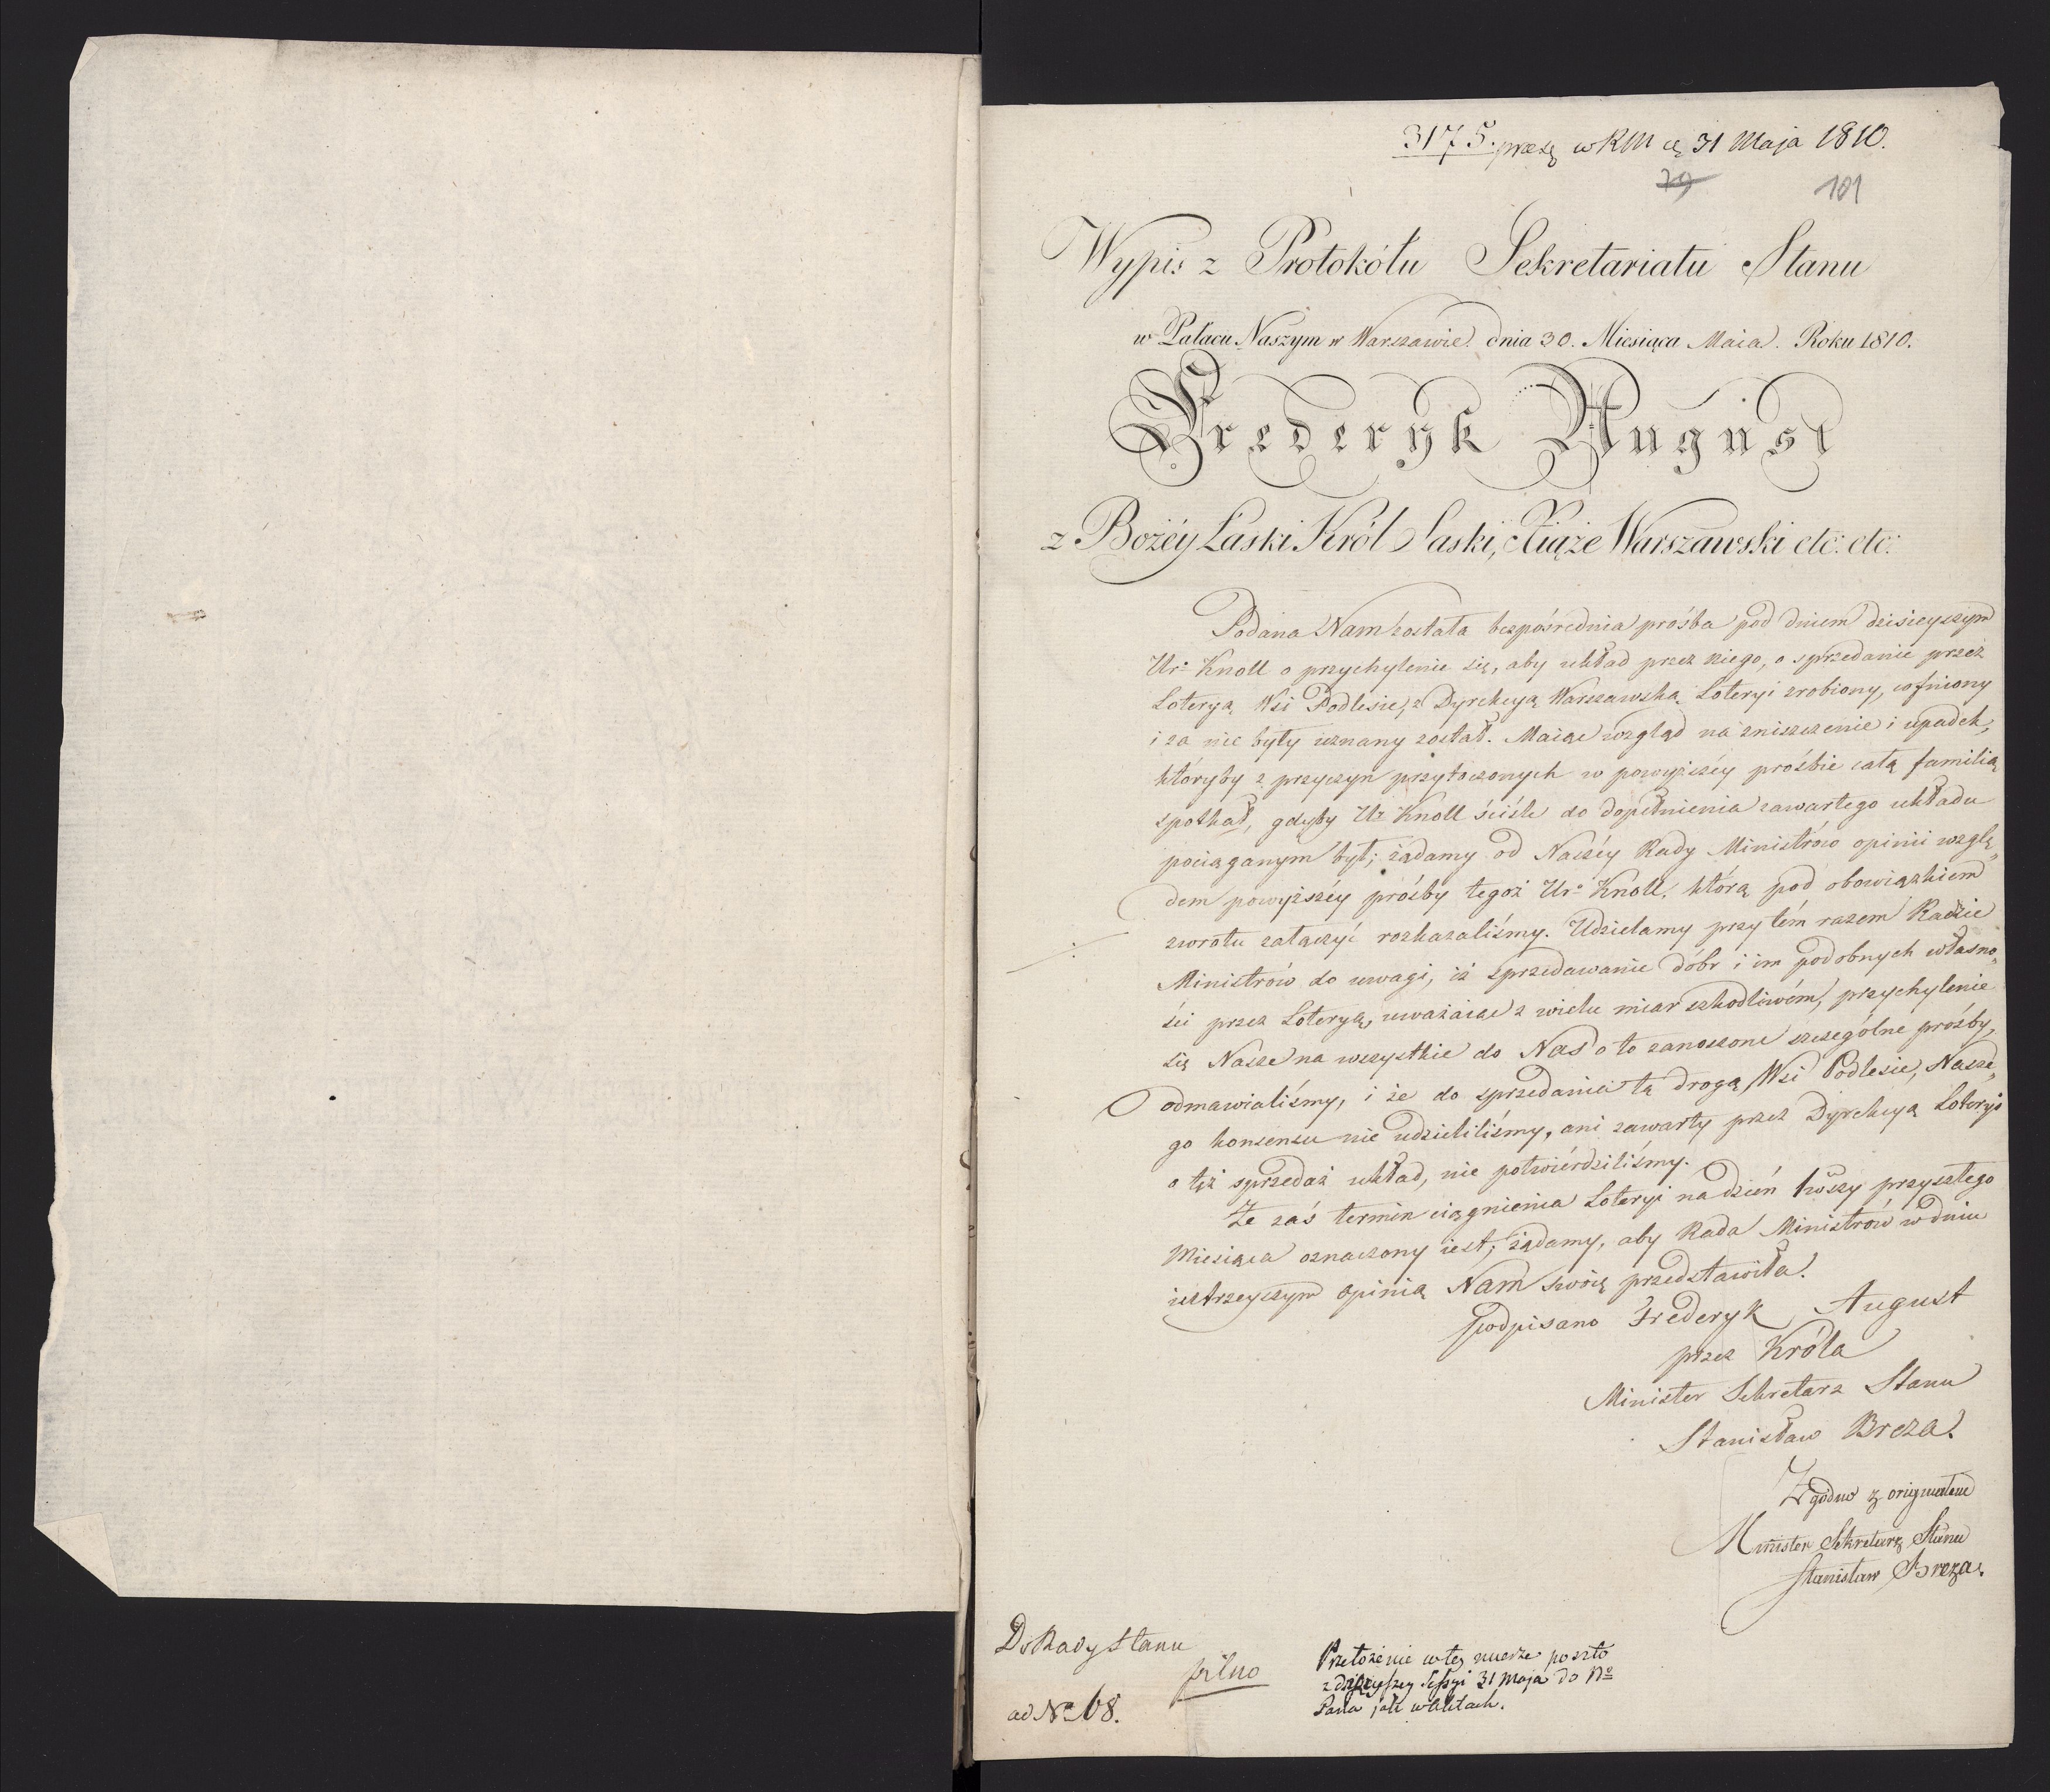 3175. w RM 31 Maja 1810.
79 101
Wypis z Protokółu Sekretariatu Stanu
w Pałacu Naszym w Warszawie dnia 30. Miesiąca Maia. Roku 1810.
Frederyk August
z Bożéy Łaski Król Saski, Xiąże Warszawski etc: etc:
Podana Nam została bezpośrednia prośba pod dniem dzisieyszym
Ur: Knoll o przychylenie się, aby układ przez niego, o sprzedanie przez
Loteryą Wsi Podlesie, z Dyrekcyą Warszawską Loteryi zrobiony, cofniony
i za nie były uznany został. Maiąc wzgląd na zniszczenie i upadek,
któryby z przyczyn przytoczonych w powyższéy prośbie całą familią
spotkał, gdyby Ur: Knoll ściśle do dopełnienia zawartego układu
pociąganym był; żądamy od Naszéy Rady Ministrów opinii wzglę„
dem powyższéy prośby tegoż Ur: Knoll, którą pod obowiązkiem
zwrotu załączyć rozkazaliśmy. Udzielamy przytém razem Radzie
Ministrów do uwagi, iż sprzedawanie dóbr i im podobnych własno„
ści przez Loteryą, uważaiąc z wielu miar szkodliwém, przychylenie
się Nasze na wszystkie do Nas o to zanoszone szczególne prośby,
odmawialiśmy, i że do sprzedania tą drogą Wsi Podlesie, Nasze„
go konsensu nie udzieliliśmy, ani zawarty przez Dyrekcyą Loteryi
o téż sprzedaż układ, nie potwiérdziliśmy.
Że zaś termin ciągnienia Loteryi na dzień 1wszy przyszłego
Miesiąca oznaczony iest; żądamy, aby Rada Ministrów w dniu
iutrzeyszym opinią Nam swoię przedstawiła.
podpisano Frederyk August
przez Króla
Minister Sekretarz Stanu
Stanisław Breza.
Zgodno z originałem
Minister Sekretarz Stanu
Stanisław Breza.
Do Rady Stanu
pilno
ad No 68.
Przełożenie w tey mierze poszło
z dzisieyszey Sessyi 31 Maja do No
Pana jak w Aktach.